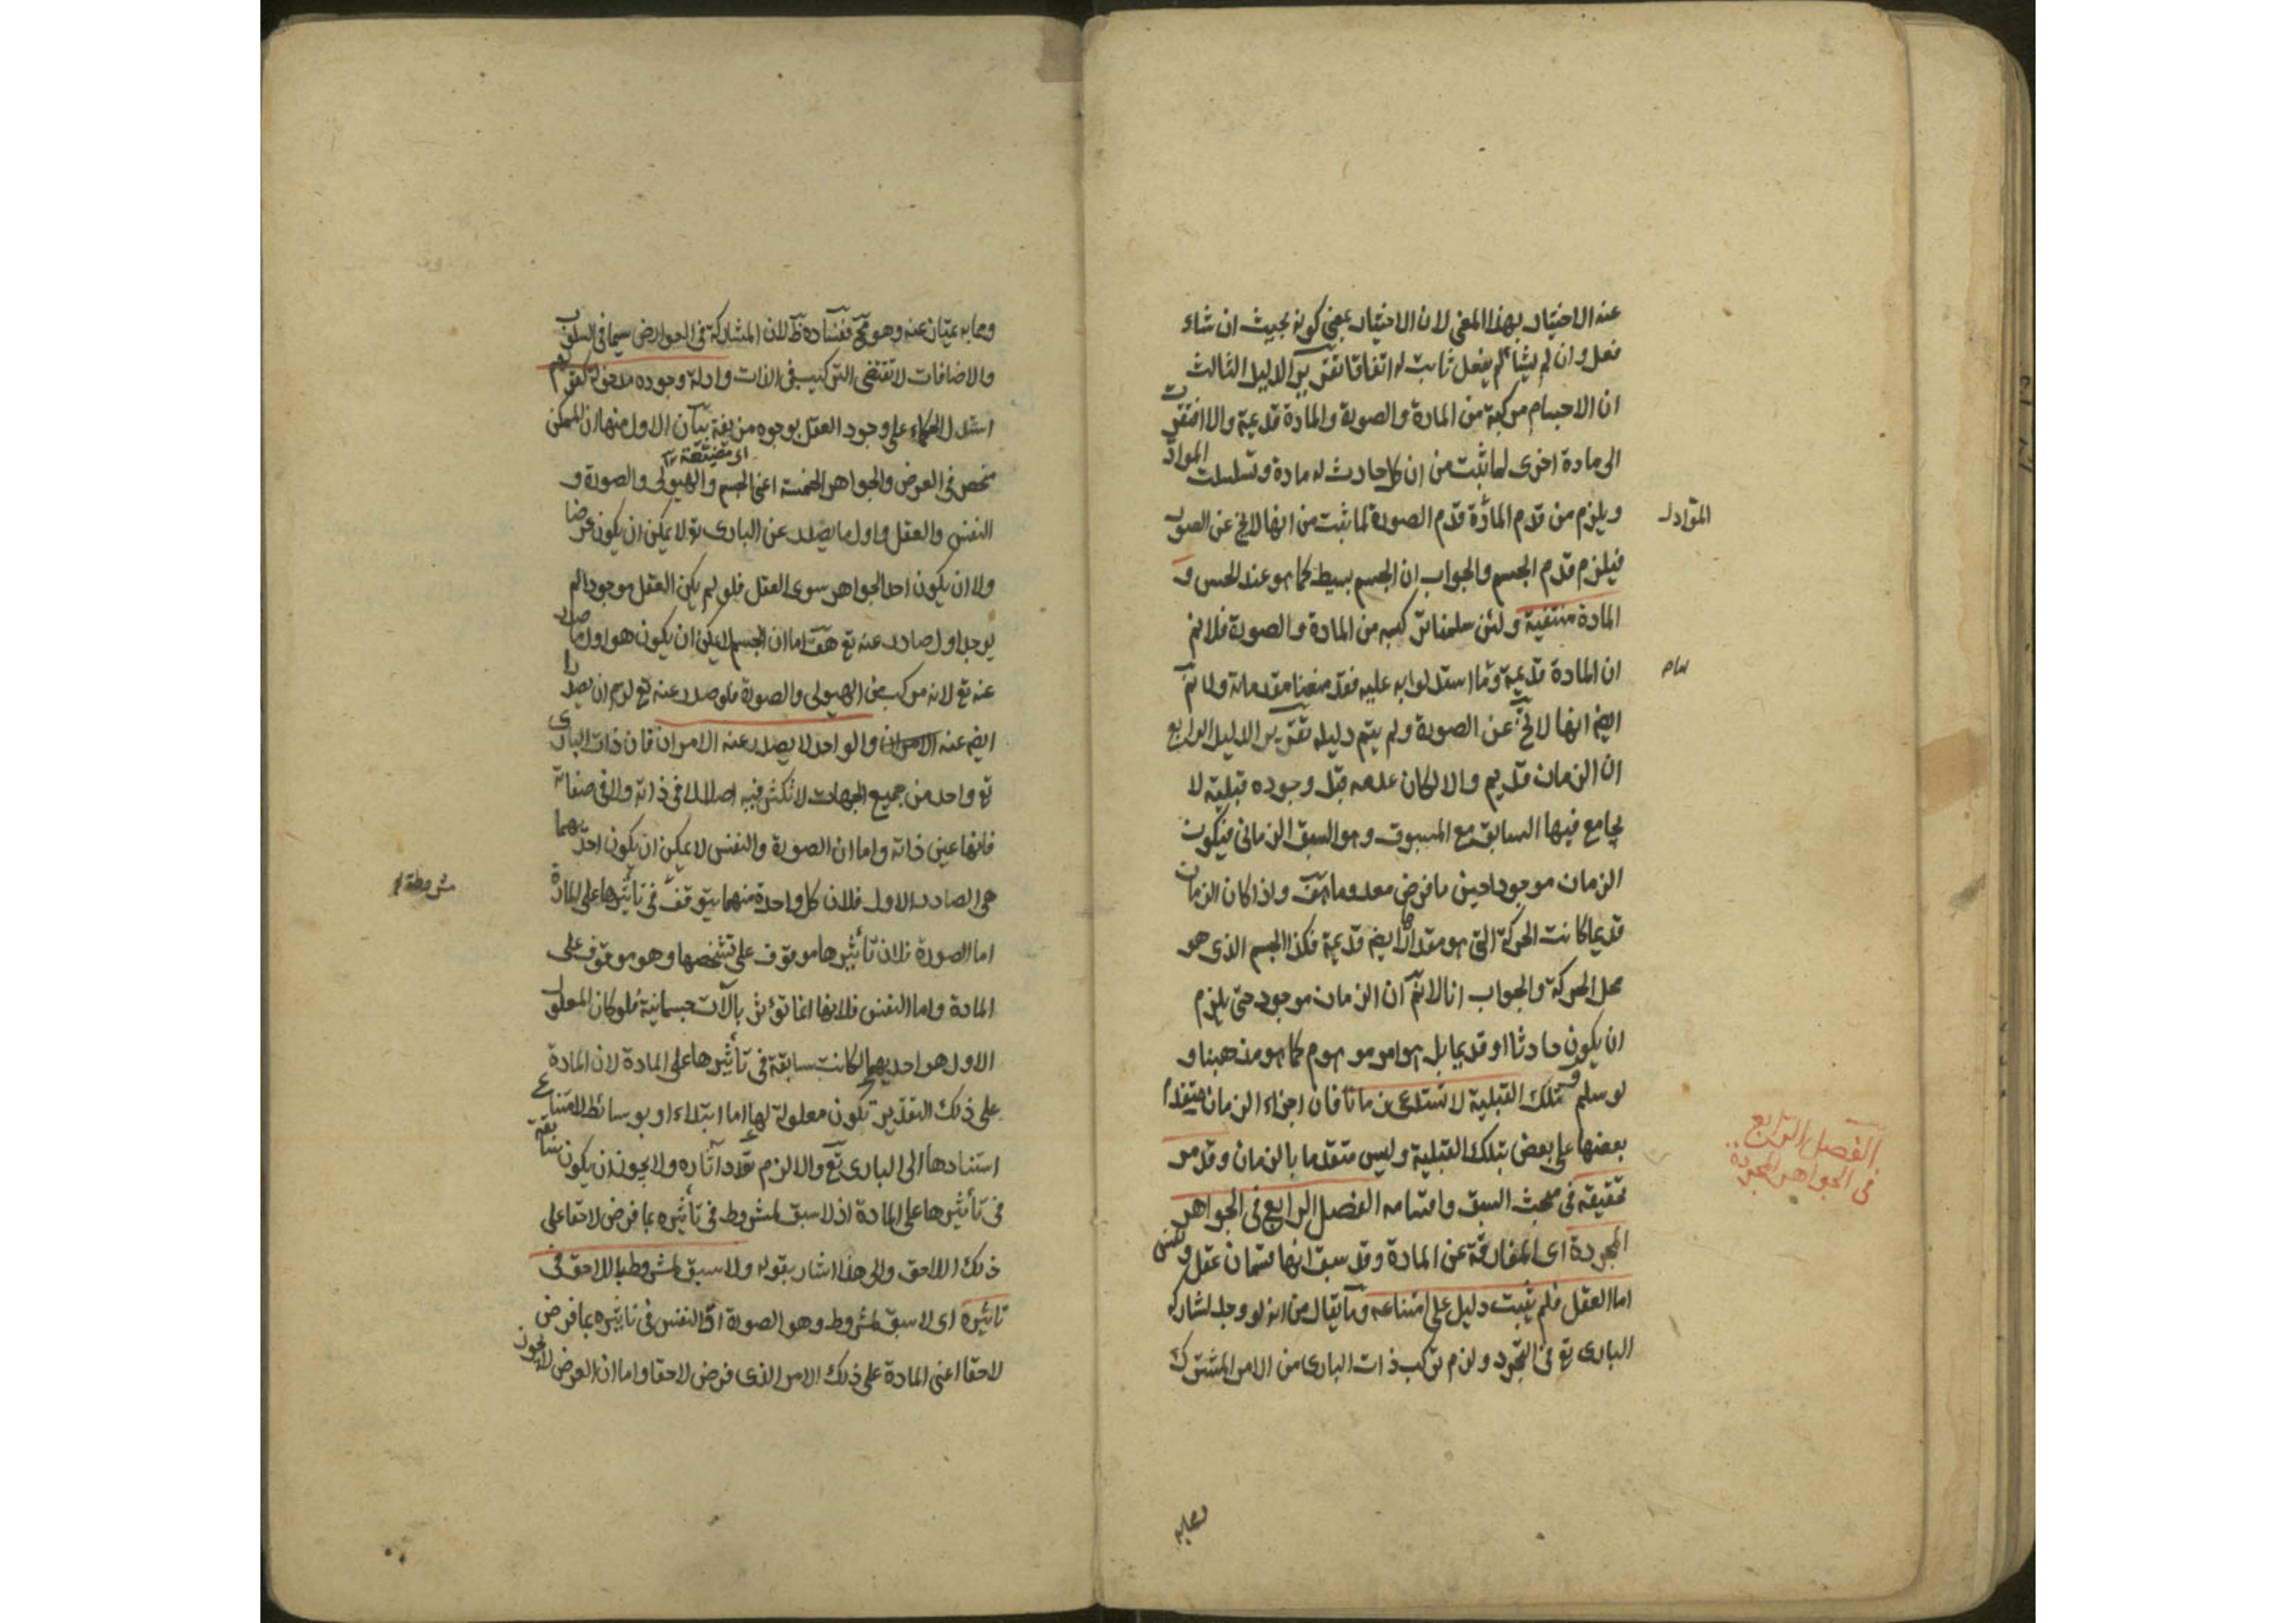 عنه الاختيار بهذا المعنى لان الاختيار بمعنى كونه بحيث ان شاء
فعل وان لم يشأ لم يفعل ثابت له اتفاقا تقرير الدليل الثالث
ان الاجسام مركبة من المادة والصورة والمادة قديمة والا افتقرت
الى مادة اخرى لما ثبت من ان كل حادث له مادة وتسلسلت المواد
ويلزم من قدم المادة قدم الصورة لما ثبت من انها لا تخ عن الصورة
المواد
فيلزم قدم الجسم والجواب ان الجسم بسيط كما هو عند الحس و
المادة منتفية ولئن سلمنا تركبه من المادة والصورة فلا نم
ان المادة قديمة وما استدلوا به عليه فقد منعنا مقدماته ولا نم
ايض انها لا تخ عن الصورة ولم يتم دليله تقرير الدليل الرابع
ان الزمان قديم والا لكان عدمه قبل وجوده قبلية لا
يجامع فيها السابق مع المسبوق وهو السبق الزماني فيكون
الزمان موجودا حين ما فرض معدوما هف واذا كان الزمان
قديما كانت الحركة التي هو مقدارها ايض قديمة فكذا الجسم الذى هو
محل الحركة والجواب انا لا نم ان الزمان موجود حتى يلزم
ان يكون حادثا او قديما بل هو امر موهوم كما هو مذهبنا و
لو سلم فتلك القبلية لا تستدعى زمانا فان اجزاء الزمان متقدم
بعضها على بعض بتلك القبلية وليس متقدما بالزمان وقد مر
تحقيقه في مبحث السبق واقسامه الفصل الرابع في الجواهر
الفصل الرابع
في الجواهر المجردة
المجردة اى المفارقة عن المادة وقد سبق انها قسمان عقل ونفس
اما العقل فلم يثبت دليل على امتناعه وما يقال من انه لو وجد لشارك
البارى تع في التجرد ولزم تركب ذات البارى من الامر المشترك
ومما به
ومما به يمتاز عنه وهو مح ففساده ظ لان المشاركة في العوارض سيما في السلوب
والاضافات لا تقتضى التركيب في الذات وادلة وجوده مدخولة كقولهم
استدل الحكماء على وجود العقل بوجوه مزيفة بيان الاول منها ان الممكن
منحصر في العرض والجواهر الخمسة اعنى الجسم والهيولى والصورة و
النفس والعقل واول ما يصدر عن البارى تع لا يمكن ان يكون عرضا
ولا ان يكون احد الجواهر سوى العقل فلو لم يكن العقل موجودا لم
يوجد اول صادر عنه تع هف اما ان الجسم لا يمكن ان يكون هو اول ما صدر
عنه تع لانه مركب من الهيولى والصورة فلو صدر عنه تع لزم ان يصدرا
ايض عنه والواحد لا يصدر عنه الامران فان ذات البارى
تع واحد من جميع الجهات لا تكثر فيه اصلا لا في ذاته ولا في صفاته
فانها عين ذاته واما ان الصورة والنفس لا يمكن ان يكون احديهما
هي الصادر الاول فلان كل واحدة منهما يتوقف في تأثيرها على المادة
اما الصورة فلان تأثيرها موقوف على تشخصها وهو موقوف على
المادة واما النفس فلانها انما تؤثر بالآلات جسمانية فلو كان المعلول
الاول هو احديهما لكانت سابقة في تأثيرها على المادة لان المادة
على ذلك التقدير تكون معلولة لها اما ابتداء او بوسائط لامتناع
استنادها الى البارى تع والا لزم تعدد آثاره ولا يجوز ان يكون سابقة
في تأثيرها على المادة اذ لا سبق لمشروط في تأثيره بما فرض لاحقا على
ذلك اللاحق والى هذا اشار بقوله ولا سبق لمشروط باللاحق في
تاثيره اى لا سبق لمشروط وهو الصورة او النفس في تاثيره بما فرض
لاحقا اعنى المادة على ذلك الامر الذى فرض لاحقا واما ان العرض لا يجوز